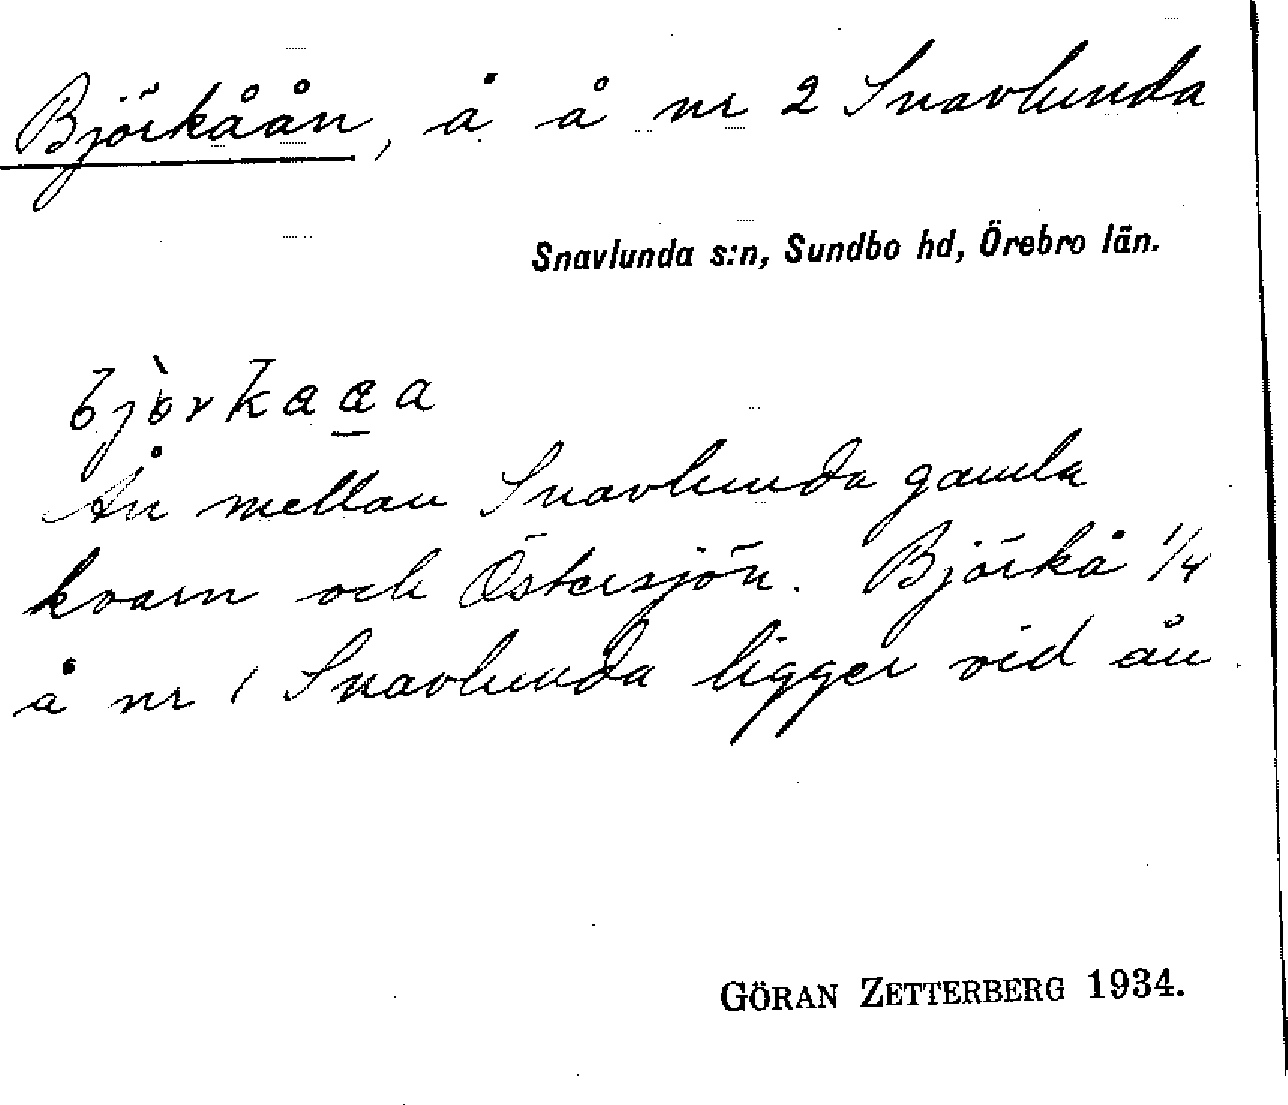 Björkåån, å å nr 2 Snavlunda
Snavlunda s:n, Sundbo hd, Örebro län.
bjòrkaaa
Ån mellan Snavlunda gamla
kvarn och Östersjön. Björkå 1/4
å nr 1 Snavlunda ligger vid ån.
GÖRAN ZETTERBERG 1934.